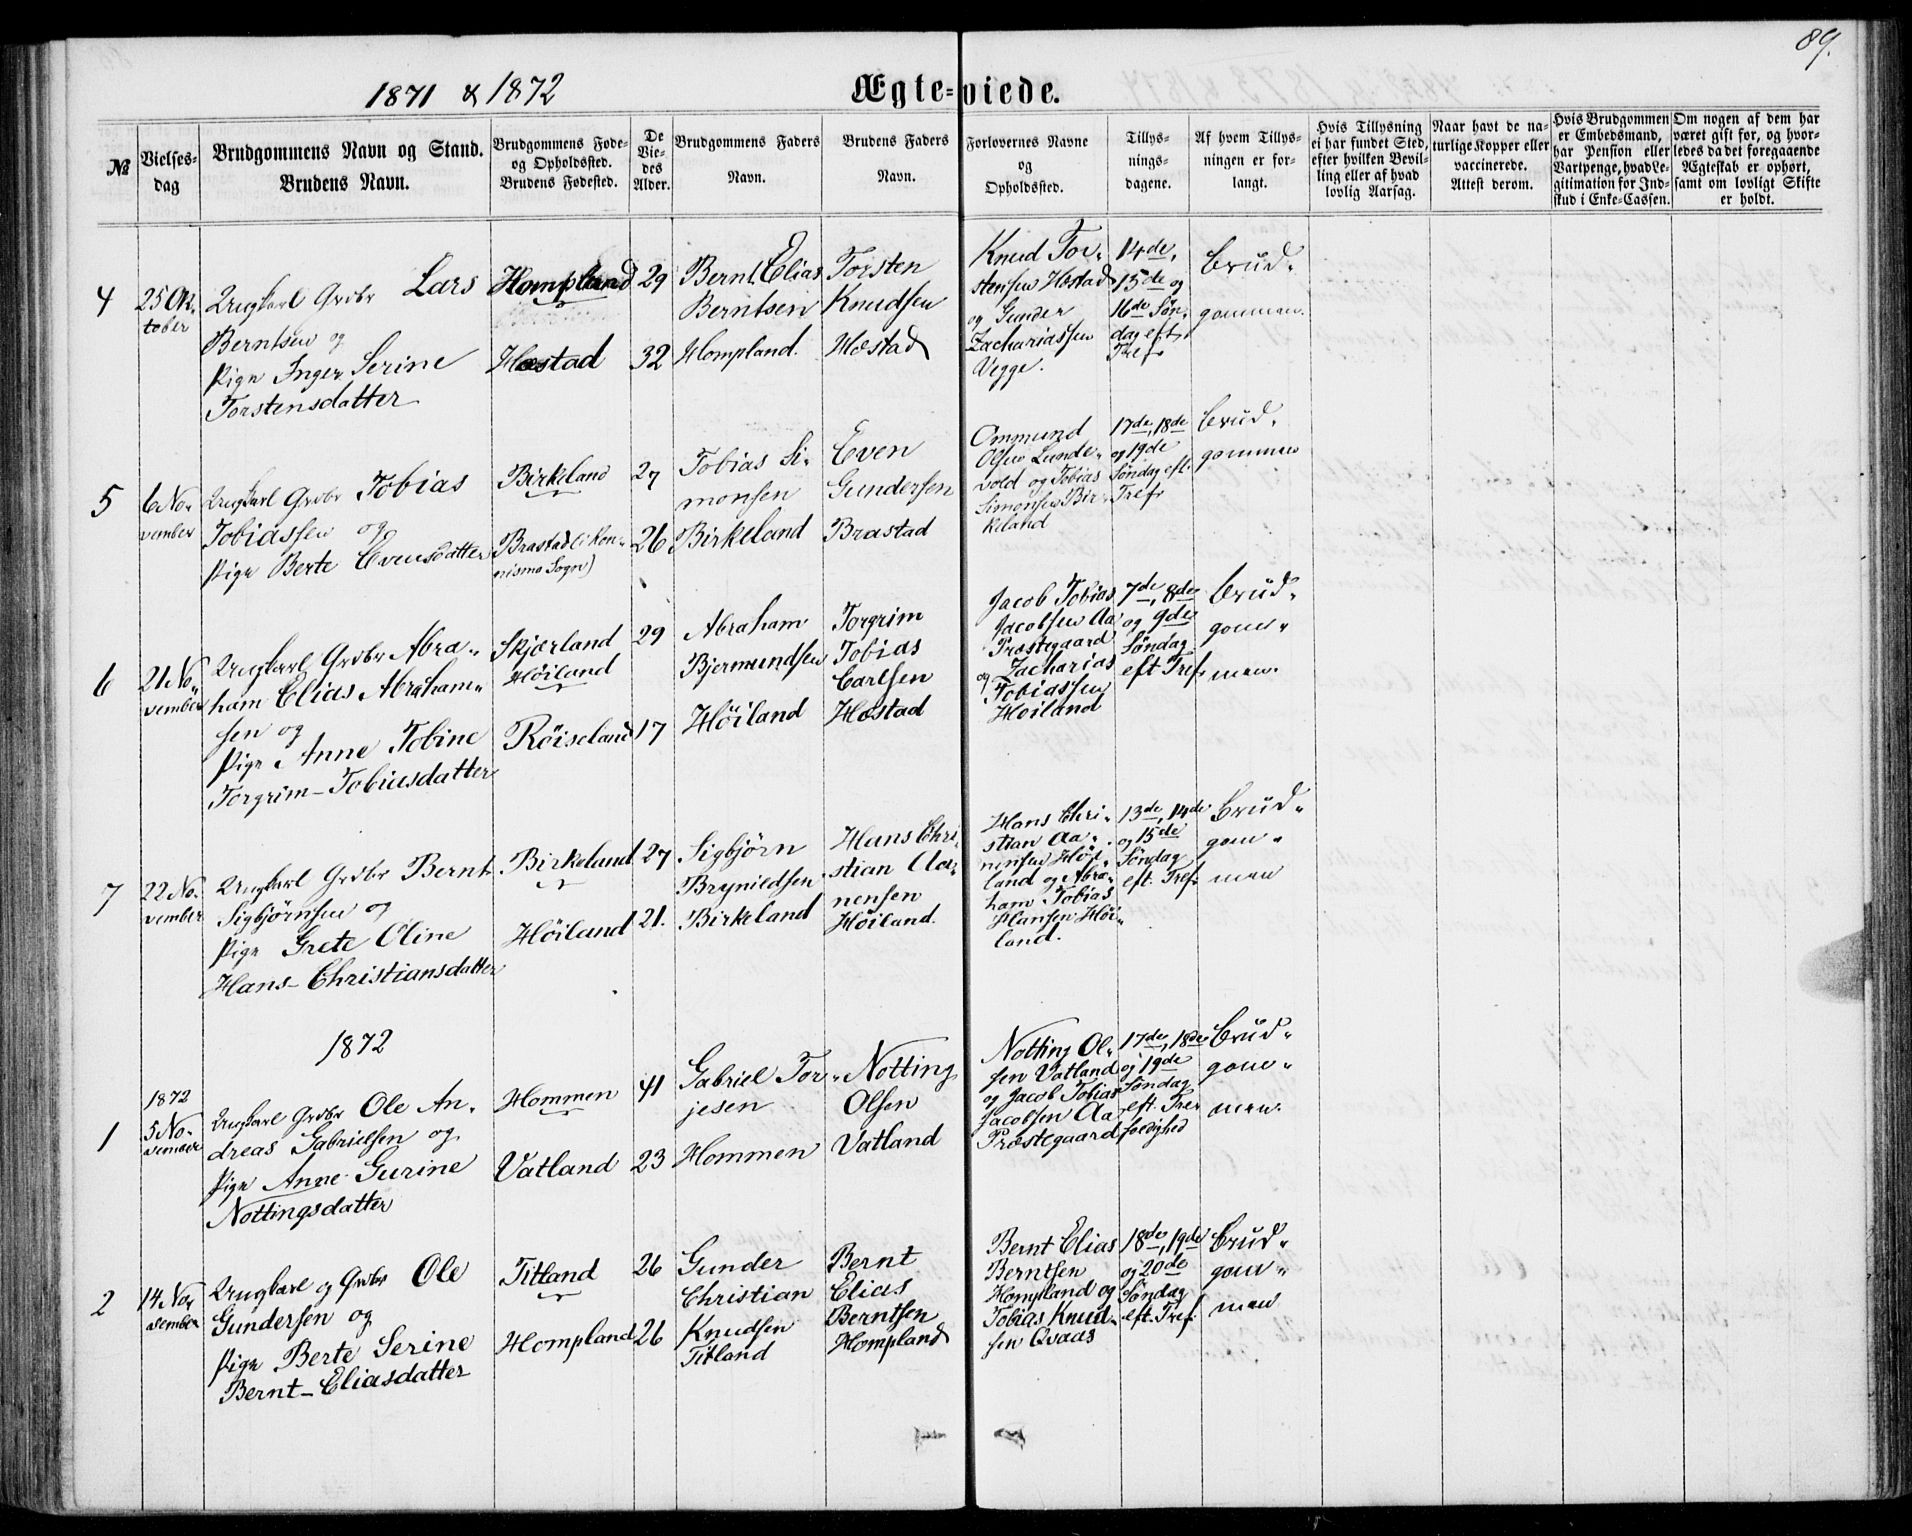 89.
1871 & 1872
Ægte-viede.
№
Vielses-
dag
Brudgommens Navn og Stand.
Brudens Navn.
Brudgommens Føde-
og Opholdssted.
Brudens Fødested.
De
Vie-
des
Alder.
Brudgommens Faders
Navn.
Brudens Faders
Navn.
Forlovernes Navne
og
Opholdssted.
Tillys-
nings-
dagene.
Af hvem Tillys-
ningen er for-
langt.
Hvis Tillysning
ei har fundet Sted,
efter hvilken Bevil-
ling eller af hvad
lovlig Aarsag.
Naar havt de na-
turlige Kopper eller
vaccinerede.
Attest derom.
Hvis Brudgommen
er Embedsmand,
har Pension eller
Vartpenge, hvad Le-
gitimation for Ind-
skud i Enke-Cassen.
Om nogen af dem har
været gift før, og hvor-
ledes da det foregaaende
Ægteskab er ophørt,
samt om lovligt Skifte
er holdt.
4
25 Ok-
tober
Ungkarl Grdbr Lars
Berntsen og
Pige Inger Serine
Torstensdatter
Hompland
Hæstad
29
32
Bernt Elias
Berntsen
Hompland.
Torsten
Knudsen
Hæstad
Knud Tor-
stensen Hæstad
og Gunder
Zachariassen
Vegge.
14de,
15de og
16de Søn-
dag eft.
Tref.
Brud-
gommen.
5
6 No-
vember
Ungkarl Grdbr Tobias
Tobiassen og
Pige Berte Evensdatter
Birkeland
Brastad (i Kon-
nismo Sogn)
27
26
Tobias Si-
monsen
Birkeland
Even
Gundersen
Brastad
Ommund
Olsen Lunde-
vold og Tobias
Simonsen Bir-
keland
17de, 18de
og 19de
Søndag eft.
Tref.
Brud-
gommen
6
21 No-
vember
Ungkarl Grdbr Abra-
ham Elias Abraham-
sen og
Pige Anne Tobine
Torgrim-Tobiasdatter
Skjærland
Höiland
Röiseland
29
17
Abraham
Bjermundsen
Höiland
Torgrim
Tobias
Carlsen
Hæstad
Jacob Tobias
Jacobsen Aa
Præstegaard
og Zacharias
Tobiassen
Höiland
7de, 8de
og 9de
Søndag
eft. Tref.
Brud-
gom-
men.
7
22 No-
vember
Ungkarl Grdbr Bernt
Sigbjørnsen og
Pige Grete Oline
Hans-Christiansdatter
Birkeland
Höiland
27
21.
Sigbjörn
Brynildsen
Birkeland
Hans Chri-
stian Aa-
nensen
Höiland.
Hans Chri-
stian Aa-
nensen Höi-
land og Abra-
ham Tobias
Hansen Höi-
land.
13de, 14de
og 15de
Søndag
eft. Tref.
Brud-
gom-
men
1872
1
1872
5 No-
vember
Ungkarl Grdbr Ole An-
dreas Gabrielsen og
Pige Anne Gurine
Nottingsdatter
Hommen
Vatland
41
23
Gabriel Tor-
jesen
Hommen
Notting
Olsen
Vatland
Notting Ol-
sen Vatland
og Jacob Tobias
Jacobsen Aa
Præstegaard
17de, 18de
og 19de
Søndag
eft. Tre-
foldighed
Brud-
gom-
men.
2
14 No-
vember
Ungkarl og Grdbr Ole
Gundersen og
Pige Berte Serine
Bernt-Eliasdatter
Titland
Hompland
26
26
Gunder
Christian
Knudsen
Titland
Bernt
Elias
Berntsen
Hompland
Bernt Elias
Berntsen
Hompland og
Tobias Knud-
sen Qvaas
18de, 19de
og 20de
Søndag
eft. Tref.
Brud-
gom-
men